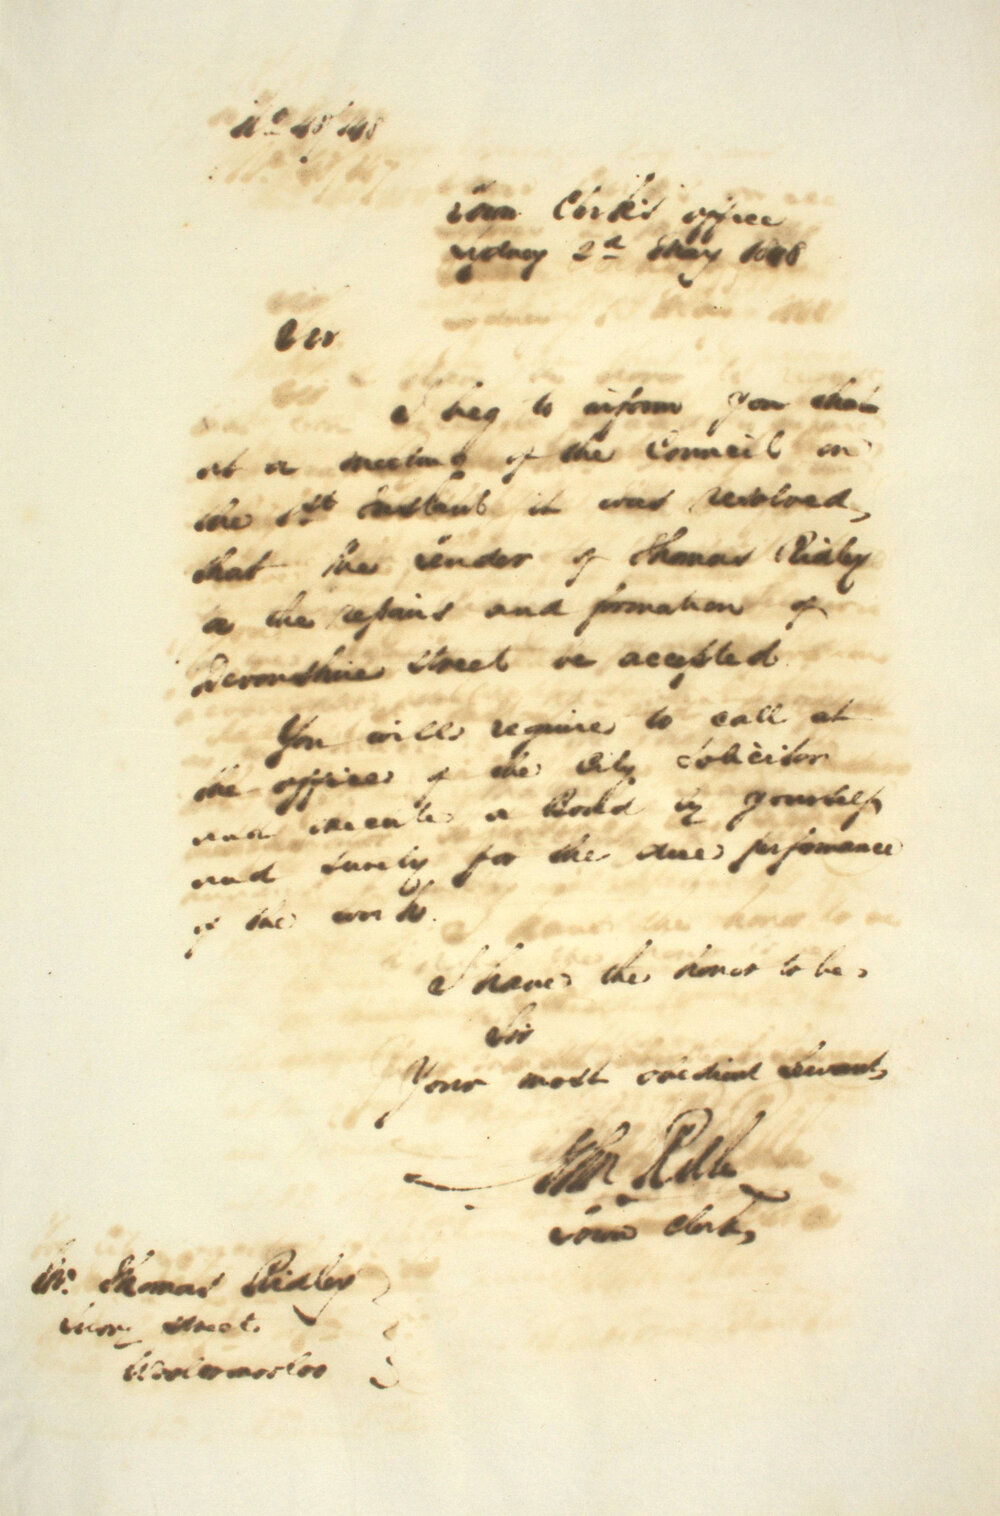 No 48/148
Town Clerk's office
Sydney 2d May 1848
Sir
I beg to inform you that
at a meeting of the Council on
the 1st Instant it was resolved,
that the Tender of Thomas Ridley
to the repairs and formation of
Devonshire Street be accepted
You will require to call at
the office of the City Solicitor
and execute a Bond by yourself
and surety for the due performance
of the work.
I have the honor to be,
Sir
Your most obedient Servant,
John
Town Clerk,
Mr. Thomas Ridley
Street
Woolloomooloo